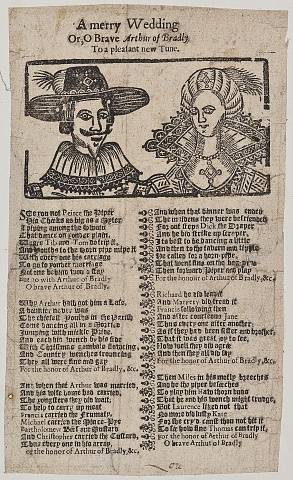 A merry Wedding
Or, O Brave Arthur of Bradly.
To a pleasant new Tune.
See you not Peirce the Piper
His Cheeks as big as a
A piping among the
That dance on yonder
to it,
And to the horn pipe nipe it
With every one his carriage
to go to yonder marriage
Not one behind would stay
But go with Arthur of Bradly
O brave Arthur of Bradly.
Why Arthur hath got him a Lass,
A bonnier never was
The chiefest youths in the Parish
Come dancing all in a Morris
Jumping with mickle Pride,
And each his wench by his side
With Christmas gambols
And Country wenches trouncing
They all were fine and gay
For the honor of Arthur of Bradly, &c.
And when that Arthur was married,
And his wife home had carried,
The youngsters they did wait,
To help to carry up meat
Francis carried the Frumaty,
Michael carried the Mince-Pye
Bartholomew Beef and Mustard
And Christopher carried the Custard,
Thus every one in his array,
For the honor of Arthur of Bradly, &c.
And when that dinner was ended
The maidens they were befriended
For out steps Dick the Draper
And he bid strike up
It's best to be dancing a little
And then to the tavern and tipple
He calls for a horn-pipe,
That went fine on the bag-pipe
Then forward Piper and play
For the honour of Arthur of Bradly, &c.
Richard he did lead it
And Margery did tread it
Francis following then
And after courteous Jane
Thus every one after another,
As if they had been sister and brother,
That it was great joy to see,
How well they did agree
And then they all did say
For the honor of Arthur of Bradly, &c.
Then Miles in his motly breeches
And he the piper beseeches
To play him
That he and his wench might trudge,
But Laurence liked not that
No more did lusty Kate
For she cry'd canst thou not hit it
To see how fine Thomas can trip it,
For the honor of Arthur of Bradly
O brave Arthur of Bradly